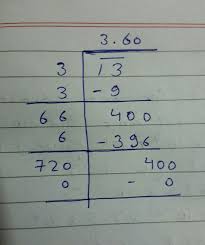 3.60
3 13
3 -9
66 400
6 -396
720 400
0 - 0